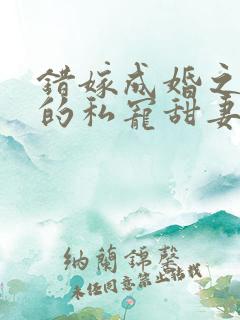 错嫁成婚之
的私宠甜妻
纳蘭錦馨
未经同意禁止转载